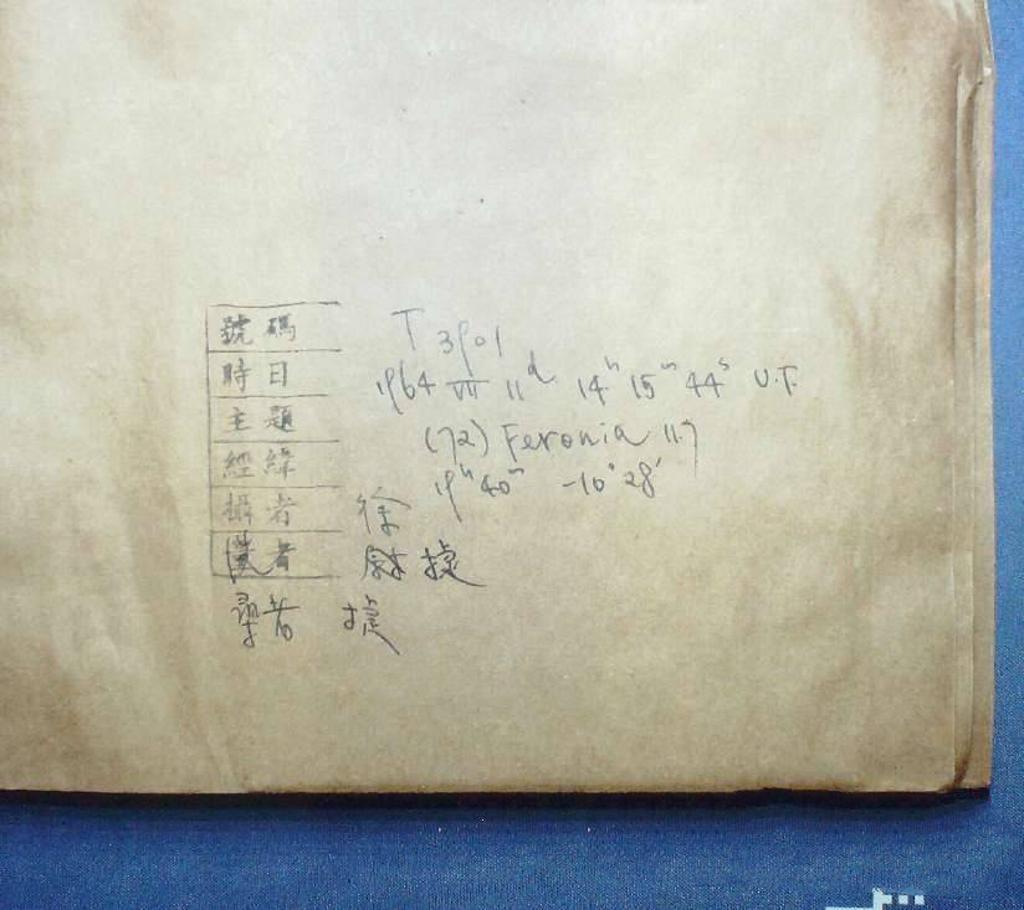 號碼 T 3901
時日 1964 VII 11ᵈ 14ʰ 15ᵐ 44ˢ U.T.
主題 (72) Feronia 11.7
經緯 19ʰ 40ᵐ -10° 28'
攝者 徐
者 捷
尋者 捷